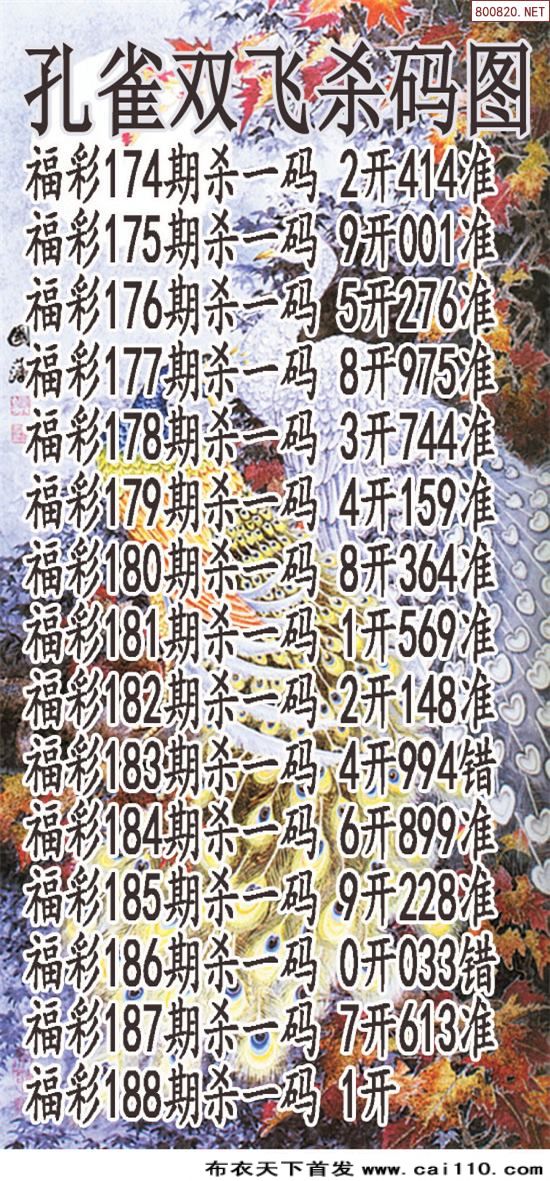 800820.NET
孔雀双飞杀码图
福彩174期杀一码 2开414准
福彩175期杀一码 9开001准
福彩176期杀一码 5开276准
福彩177期杀一码 8开975准
福彩178期杀一码 3开744准
福彩179期杀一码 4开159准
福彩180期杀一码 8开364准
福彩181期杀一码 1开569准
福彩182期杀一码 2开148准
福彩183期杀一码 4开994错
福彩184期杀一码 6开899准
福彩185期杀一码 9开228准
福彩186期杀一码 0开033错
福彩187期杀一码 7开613准
福彩188期杀一码 1开
布衣天下首发 www.cai110.com